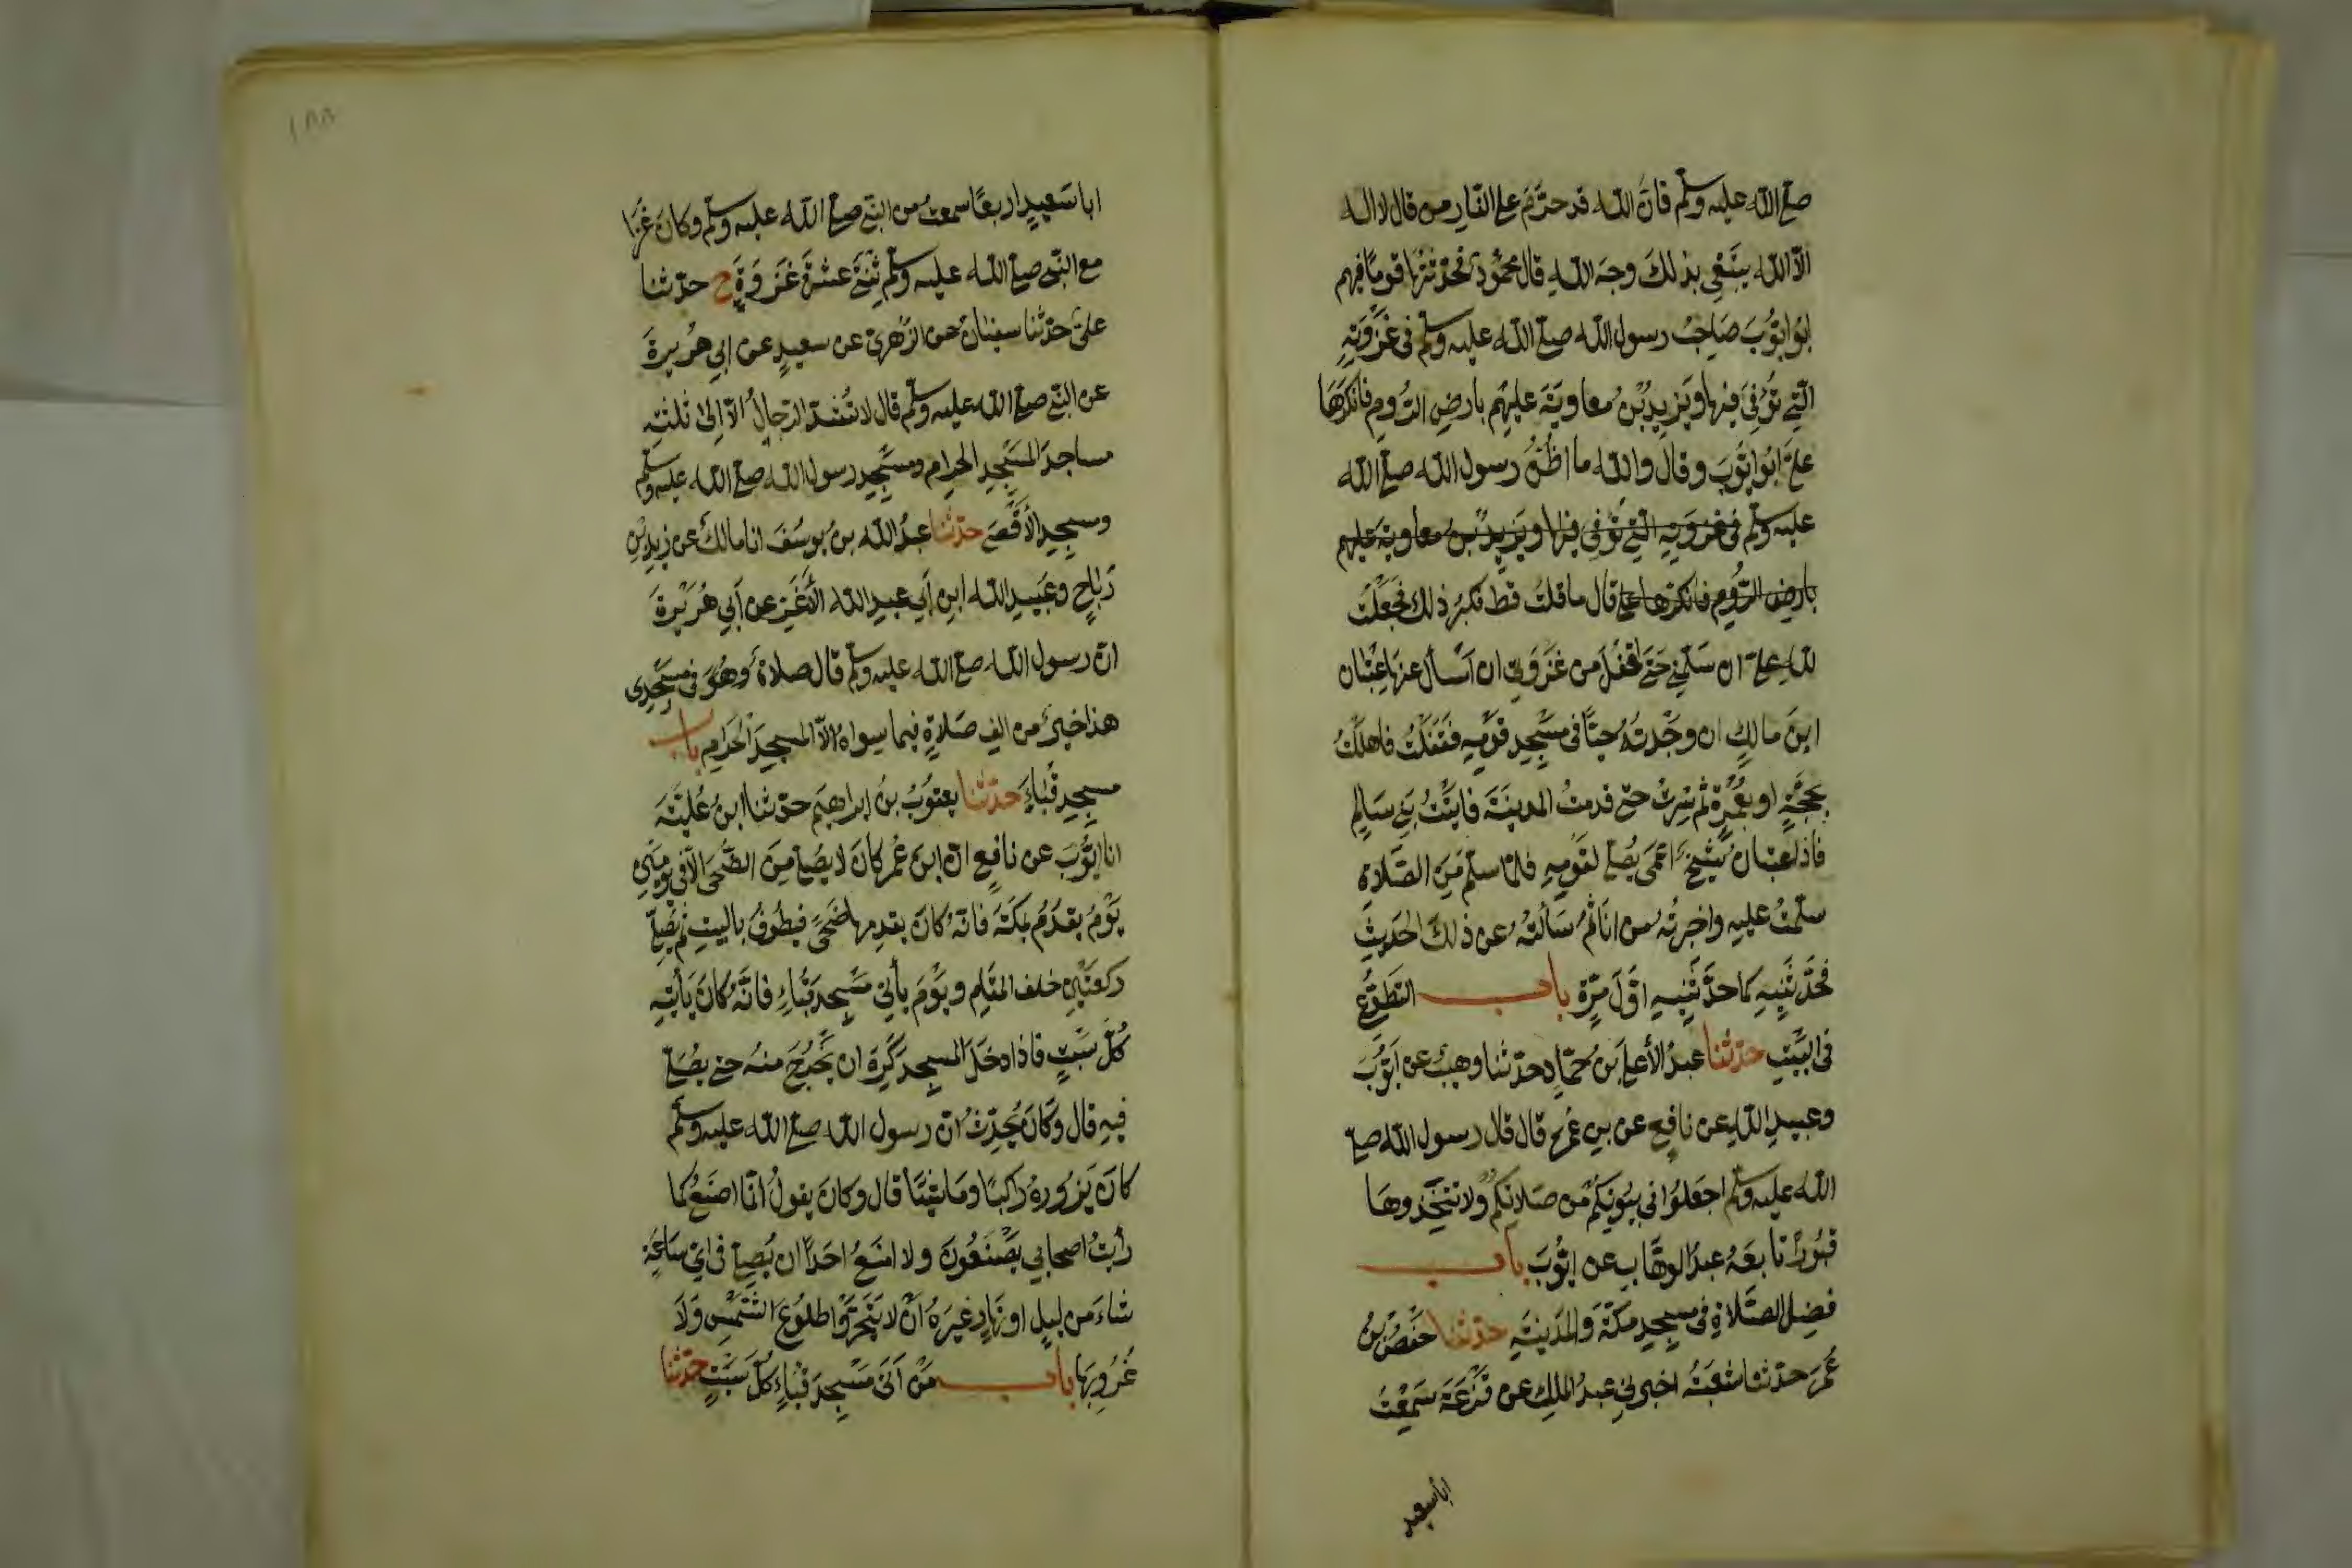 صلى الله عليه وسلم فان الله قد حرّم على النار من قال لا اله
الّا الله يبتغي بذلك وجه الله قال محمود فحدثتها قوما فيهم
ابو ايّوب صاحب رسول الله صلى الله عليه وسلم فى غزوته
التى توفى فيها ويزيد بن معاوية عليهم بارض الروم فانكرها
علىّ ابو ايوب وقال والله ما اظن رسول الله صلى الله
عليه وسلم فى غزوته التى توفى فيها ويزيد بن معاوية عليهم
بارض الروم فانكرها على قال ما قلت قط فكبر ذلك فجعلت
لله علىّ ان سلمنى حتى اقفل من غزوتى ان اسأل عنها عتبان
ابن مالك ان وجدته حيّا فى مسجد قومه فقفلت فاهللت
بحجّة او بعمرة ثم سرت حتى قدمت المدينة فاتيت بنى سالم
فاذا عتبان شيخ اعمى يصلى لقومه فلما سلم من الصلاة
سلّمت عليه واخبرته من انا ثم سألته عن ذلك الحديث
فحدّثنيه كما حدّثنيه اوّل مرّة باب التطوّع
فى البيت حدثنا عبد الأعلى بن حمّاد حدّثنا وهيب عن ايّوب
وعبيد الله عن نافع عن بن عمر قال قال رسول الله صلى
الله عليه وسلم اجعلوا فى بيوتكم من صلاتكم ولا تتخذوها
قبورًا تابعه عبد الوهّاب عن ايّوب باب
فضل الصلاة فى مسجد مكّة والمدينة حدثنا حفص بن
عمر حدثنا شعبة اخبرنى عبد الملك عن قزعة سمعت
ابا سعيد
١٨٨
ابا سعيد اربعًا سمعت من النبى صلى الله عليه وسلم وكان غزا
مع النبى صلى الله عليه وسلم ثنتى عشرة غزوة ح حدّثنا
علىّ حدثنا سفيان عن الزهرى عن سعيد عن ابي هريرة
عن النبى صلى الله عليه وسلم قال لا تشد الرحال الّا الى ثلثة
مساجد المسجد الحرام ومسجد رسول الله صلى الله عليه وسلم
ومسجد الأقصى حدّثنا عبد الله بن يوسف انا مالك عن زيد بن
رباح وعبيد الله ابن أبي عبد الله الأغر عن أبي هريرة
انّ رسول الله صلى الله عليه وسلم قال صلاة وهو فى مسجدى
هذا خير من الف صلاة فيما سواه الّا المسجد الحرام باب
مسجد قباء حدثنا يعقوب بن ابراهيم حدّثنا ابن عليّة
انا ايّوب عن نافع انّ ابن عمر كان لا يصلى من الضّحى الّا فى يومين
يوم يقدم بمكة فانه كان يقدمها ضحىً فيطوف بالبيت ثم يصلى
ركعتين خلف المقام ويوم يأتى مسجد قباء فانّه كان يأتيه
كلّ سبت فاذا دخل المسجد كره ان يخرج منه حتى يصلى
فيه قال وكان يحدث انّ رسول الله صلى الله عليه وسلم
كان يزوره راكبا وماشيًا قال وكان يقول انّما اصنع كما
رأيت اصحابي يصنعون ولا امنع احدًا ان يصلى فى اي ساعة
شاء من ليل او نهار غيره ان لا يتحرّوا طلوع الشّمس ولا
غروبها باب من أتى مسجد قباء كلّ سبت حدّثنا